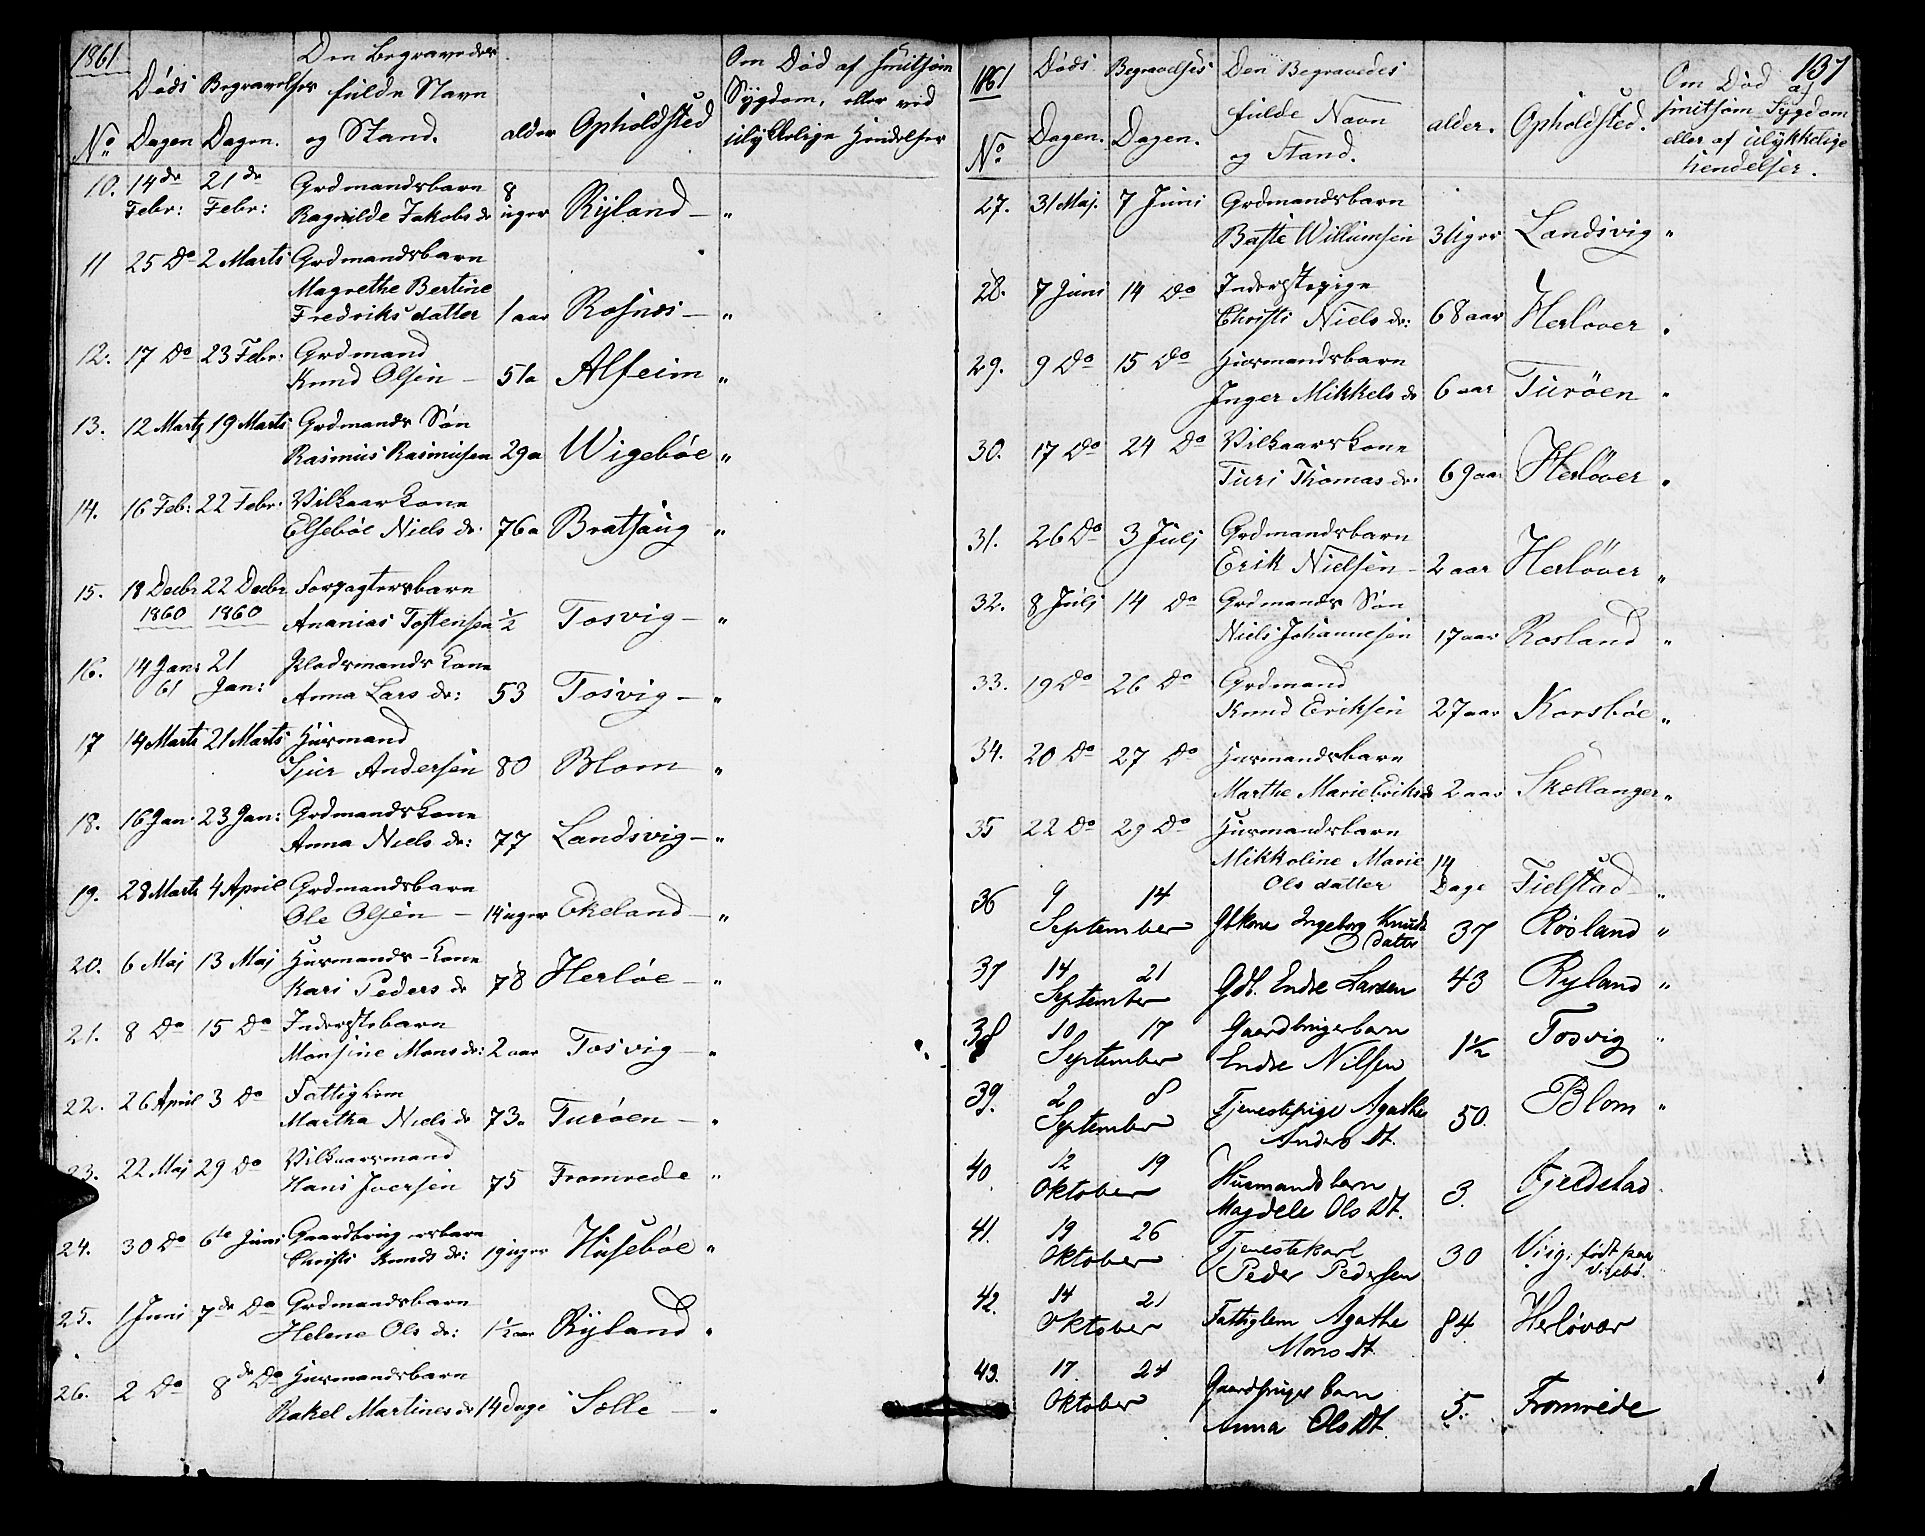 1861
Døds Dagen
Begravelses Dagen.
Den Begravedes
fulde Navn
og Stand.
alder
Opholdsted
Om Død af smitsom
Sygdom, eller ved
ulykkelige Hendelser
No
10. 14de Febr: 21de Febr: Grdmandsbarn
Ragnilde Jakobs dr 8 uger Ryland - "
11 25 Do 2 Marts Grdmandsbarn
Magrethe Bertine
Fredriks datter 1 aar Rosnes - "
12. 17 Do 23 Febr: Grdmand
Knud Olsen - 51a Alfeim "
13. 12 Marts 19 Marts Grdmands Søn
Rasmus Rasmusen 29a Wigebøe "
14. 16 Feb: 22 Febr: Vilkaarkone
Elsebøe Niels dr. 76a Bratsaug "
15. 18 Decbr 22 Decbr Forpagtersbarn
1860 1860 Ananias Tostensen ½ Tosvig - "
16. 14 Jan: 21 Pladsmands kone
61 Jan: Anna Lars dr: 53 Tosvig - "
17 14 Marts 21 Marts Husmand
Sjur Andersen 80 Blom "
18. 16 Jan 23 Jan: Grdmandskone
Anna Niels dr: 77 Landsvig - "
19. 28 Marts 4 April Grdmandsbarn
Ole Olsen - 14 uger Ekeland - "
20. 6 Maj 13 Maj Husmands-kone
Kari Peders dr 78 Herløe - "
21. 8 Do 15 Do Inderstebarn
Monsine Mons dr: 2 aar Tosvig - "
22. 26 April 3 Do Fattiglem
Martha Niels dr 73a Turøen - "
23. 22 Maj 29 Do Vilkaarsmand
Hans Iversen 75 Fromrede "
24. 30 Do 6te Juni Gaardbrugersbarn
Christi Knuds dr: 19 uger Husebøe "
25. 1 Juni 7de Do Grdmandsbarn
Helene Ols dr: 1½ aar Ryland "
26. 2 Do 8de Do Husmandsbarn
Rakel Martines dr 14 Dage Sælle - "
137
1861
Døds Dagen.
Begravelses Dagen.
Den Begravedes
fulde Navn
og Stand.
alder.
Opholdsted.
Om Død af
smitsom Sygdom
eller af ulykkelige
hendelser.
No
27. 31 Maj. 7 Juni Grdmandsbarn
Baste Willumsen 3 Uger Landsvig "
28. 7 Juni 14 Do Inderstepige
Christi Niels dr: 68 aar Herløver "
29. 9 Do 15 Do Husmandsbarn
Inger Mikkels dr 6 aar Turøen "
30. 17 Do 24 Do Vilkaarskone
Turi Thomas dr. 69 aar Herløver "
31. 26 Do 3 Julj Grdmandsbarn
Erik Nielsen - 2 aar Herløver "
32. 8 Julj 14 Do Grdmands Søn
Niels Johannesen 17 aar Rosland "
33. 19 Do 26 Do Grdmand
Knud Eriksen 27 aar Korsbøe "
34. 20 Do 27 Do Husmandsbarn
Marthe Marie Eriks dr 2 aar Skellanger "
35 22 Do 29 Do Husmandsbarn
Mikkoline Marie
Ols datter 14 Dage Fielstad "
36 9 14
September Gbkone Ingeborg Knuds
datter 37 Røsland "
37 14 21
September Gdb. Endre Larsen 43 Ryland "
38 10 17 Gaardbrugerbarn
September Endre Nilsen 1½ Tosvig "
39. 2 8 Tjenestepige Agathe
September Anders Dt. 50. Blom "
40. 12 19 Husmandsbarn
Oktober Magdele Ols Dt. 3. Fjeldstad
41. 19 26 Tjenestekarl
Oktober Peder Pedersen 30 Viig, født paa
Vigebø.
42. 14 21 Fattiglem Agathe
Oktober Mons Dt. 84 Herløvær
43. 17 24 Gaardbruger barn
Oktober Anna Ols Dt. 5. Fromrede